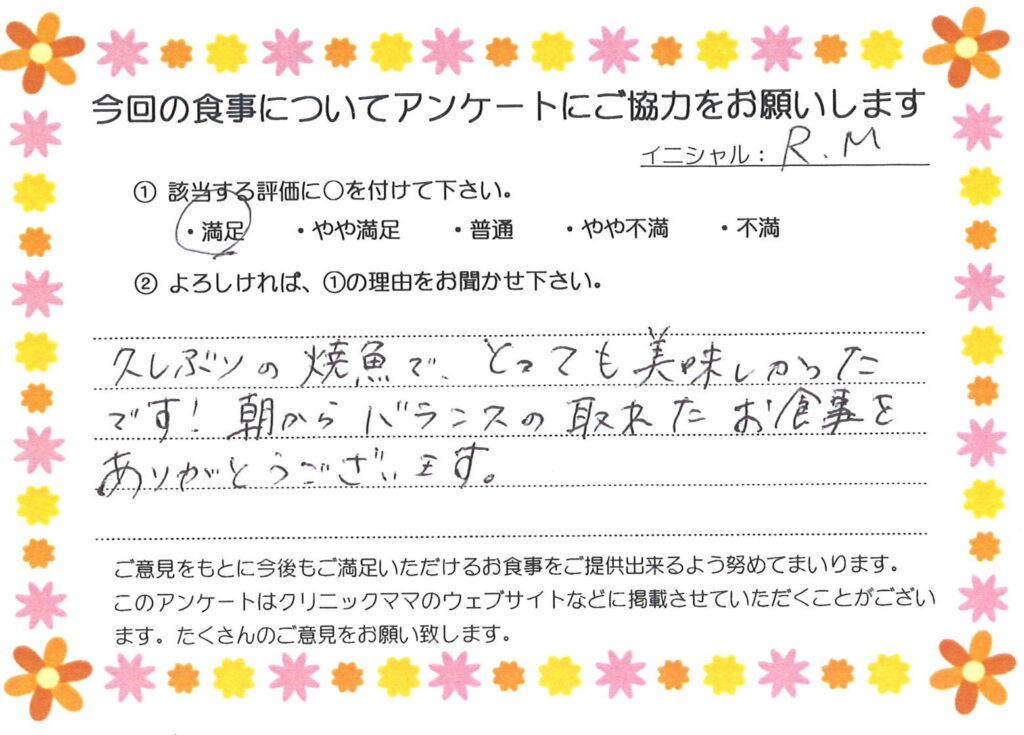 今回の食事についてアンケートにご協力をお願いします
イニシャル：R.M
① 該当する評価に〇を付けて下さい。
・満足 ・やや満足 ・普通 ・やや不満 ・不満
② よろしければ、①の理由をお聞かせ下さい。
久しぶりの焼魚で、とっても美味しかった
です！朝からバランスの取れたお食事を
ありがとうございます。
ご意見をもとに今後もご満足いただけるお食事をご提供出来るよう努めてまいります。
このアンケートはクリニックママのウェブサイトなどに掲載させていただくことがござい
ます。たくさんのご意見をお願い致します。